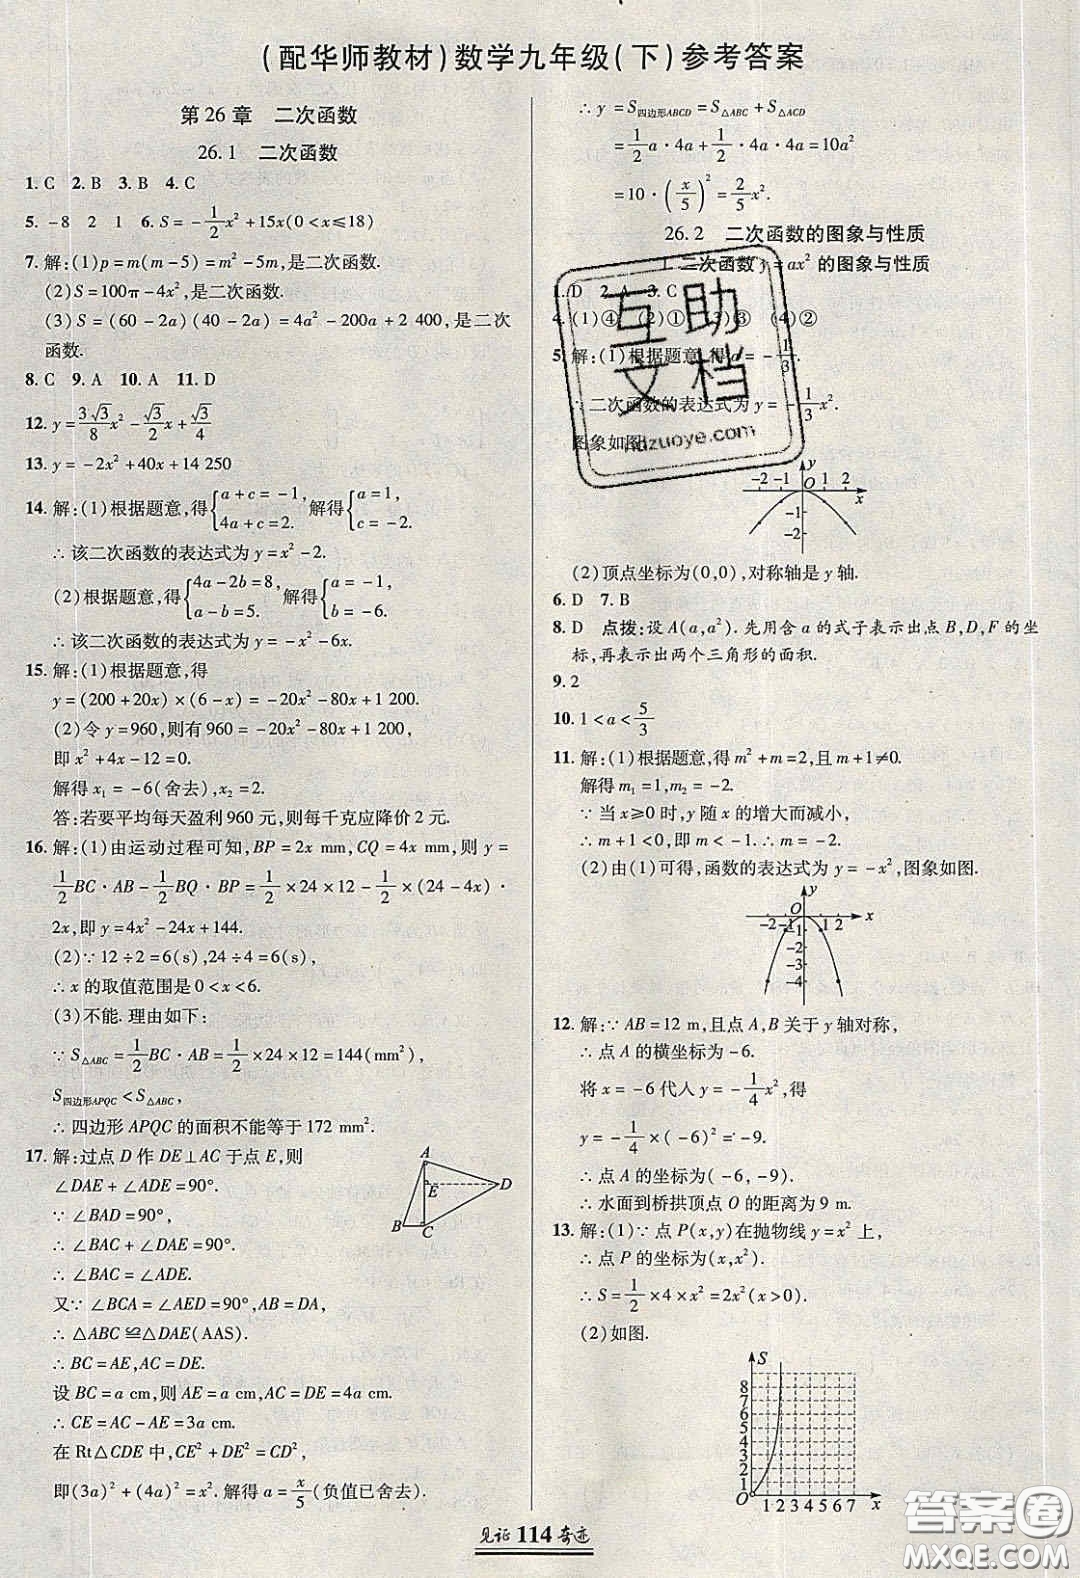 (配华师教材)数学九年级(下)参考答案
第26章 二次函数
26.1 二次函数
1. C 2. B 3. B 4. C
5. -8 2 1 6. S=-1/2x²+15x(0<x≤18)
7. 解:(1)p=m(m-5)=m²-5m,是二次函数.
(2)S=100π-4x²,是二次函数.
(3)S=(60-2a)(40-2a)=4a²-200a+2 400,是二次
函数.
8. C 9. A 10. A 11. D
12. y=3√3/8x²-√3/2x+√3/4
13. y=-2x²+40x+14 250
14. 解:(1)根据题意,得{a+c=-1, 4a+c=2. 解得{a=1, c=-2.
∴该二次函数的表达式为y=x²-2.
(2)根据题意,得{4a-2b=8, a-b=5. 解得{a=-1, b=-6.
∴该二次函数的表达式为y=-x²-6x.
15. 解:(1)根据题意,得
y=(200+20x)×(6-x)=-20x²-80x+1 200.
(2)令y=960,则有960=-20x²-80x+1 200.
即x²+4x-12=0.
解得x₁=-6(舍去),x₂=2.
答:若要平均每天盈利960元,则每千克应降价2元.
16. 解:(1)由运动过程可知,BP=2x mm,CQ=4x mm,则y=
1/2BC·AB-1/2BQ·BP=1/2×24×12-1/2×(24-4x)·
2x,即y=4x²-24x+144.
(2)∵12÷2=6(s),24÷4=6(s),
∴x的取值范围是0<x<6.
(3)不能.理由如下:
∵S△ABC=1/2BC·AB=1/2×24×12=144(mm²),
S四边形APQC<S△ABC,
∴四边形APQC的面积不能等于172 mm².
17. 解:过点D作DE⊥AC于点E,则
∠DAE+∠ADE=90°.
∵∠BAD=90°,
∴∠BAC+∠DAE=90°.
∴∠BAC=∠ADE.
又∵∠BCA=∠AED=90°,AB=DA,
∴△ABC≌△DAE(AAS).
∴BC=AE,AC=DE.
设BC=a cm,则AE=a cm,AC=DE=4a cm.
∴CE=AC-AE=3a cm.
在Rt△CDE中,CE²+DE²=CD²,
即(3a)²+(4a)²=x².解得a=x/5(负值已舍去).
A
E
D
B
C
∴y=S四边形ABCD=S△ABC+S△ACD
=1/2a·4a+1/2·4a·4a=10a²
=10·(x/5)²=2/5x².
26.2 二次函数的图象与性质
1. 二次函数y=ax²的图象与性质
1. D 2. A 3. C
4. (1)④ (2)① (3)③ (4)②
5. 解:(1)根据题意,得a=-1/3.
∵二次函数的表达式为y=-1/3x².
图象如图
y
-2 -1 O 1 2 x
-1
-2
(2)顶点坐标为(0,0),对称轴是y轴.
6. D 7. B
8. D 点拨:设A(a,a²).先用含a的式子表示出点B,D,F的坐
标,再表示出两个三角形的面积.
9. 2
10. 1<a<5/3
11. 解:(1)根据题意,得m²+m=2,且m+1≠0.
解得m₁=1,m₂=-2.
∵当x≥0时,y随x的增大而减小,
∴m+1<0,即m<-1.∴m=-2.
(2)由(1)可得,函数的表达式为y=-x²,图象如图.
y
O
x
-2 -1 1 2
-1
-2
-3
-4
12. 解:∵AB=12 m,且点A,B关于y轴对称,
∴点A的横坐标为-6.
将x=-6代人y=-1/4x²,得
y=-1/4×(-6)²=-9.
∴点A的坐标为(-6,-9).
∴水面到桥拱顶点O的距离为9 m.
13. 解:(1)∵点P(x,y)在抛物线y=x²上,
∴点P的坐标为(x,x²).
∴S=1/2×4×x²=2x²(x>0).
(2)如图.
S
8
7
6
5
4
3
2
1
O 1 2 3 4 5 6 7 x
见证 114 奇迹
互助
文档
hdzuoye.com
答案圈
MXQE.COM